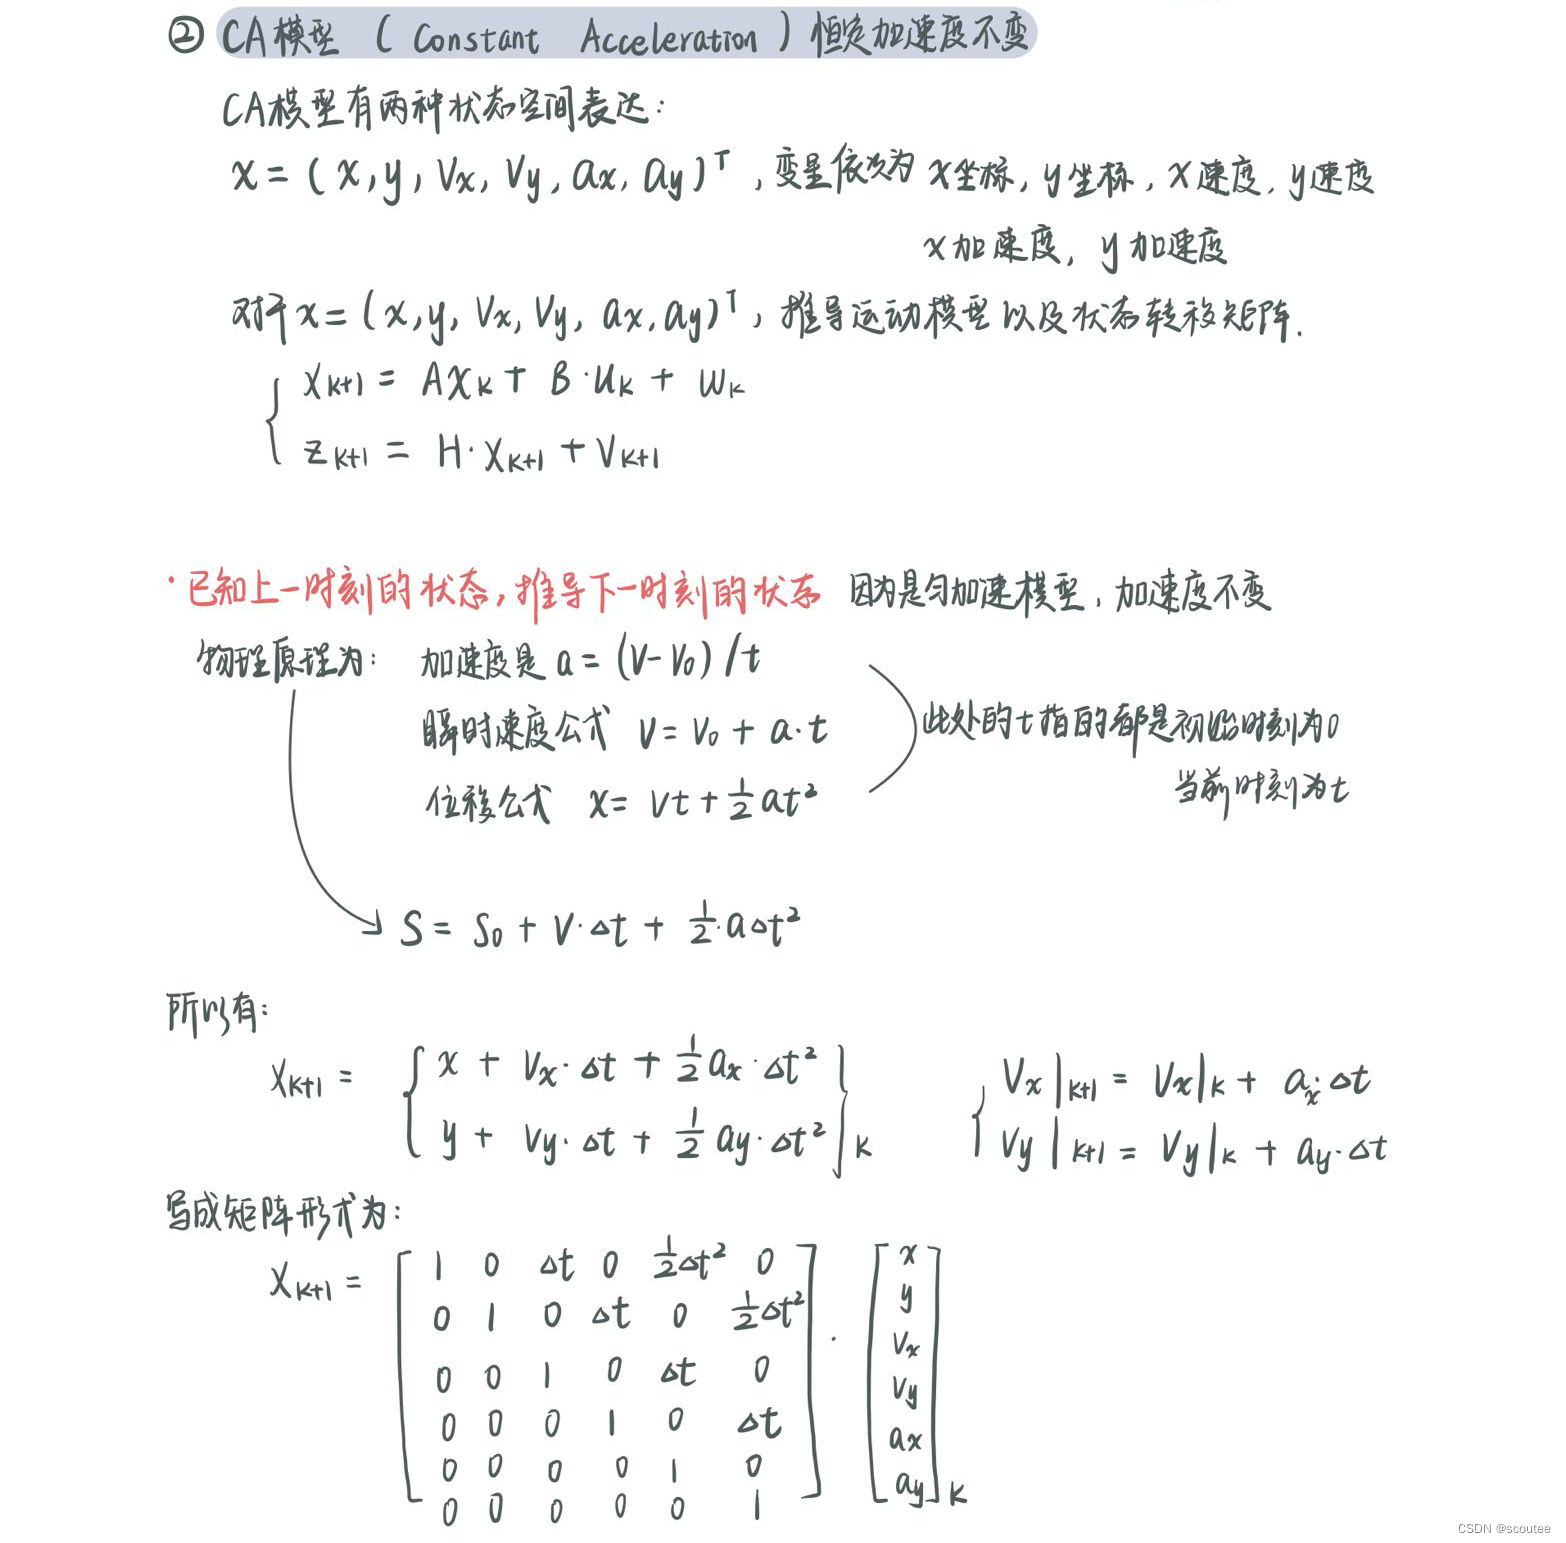 ② CA模型 ( Constant Acceleration ) 恒定加速度不变
CA模型有两种状态空间表达：
x = ( x, y, Vx, Vy, ax, ay )ᵀ , 变量依次为 x坐标, y坐标, x速度, y速度
x加速度, y加速度
对于 x = ( x, y, Vx, Vy, ax, ay )ᵀ , 推导运动模型以及状态转移矩阵.
{ Xk+1 = AXk + B·Uk + Wk
Zk+1 = H·Xk+1 + Vk+1
· 已知上一时刻的状态, 推导下一时刻的状态 因为是匀加速模型, 加速度不变
物理原理为: 加速度是 a = (V-V₀)/t
瞬时速度公式 V = V₀ + a·t
此处的t指的都是初始时刻为0
位移公式 x = Vt + ½at²
当前时刻为t
S = S₀ + V·Δt + ½·aΔt²
所以有:
Xk+1 = { x + Vx·Δt + ½ax·Δt² { Vx|k+1 = Vx|k + ax·Δt
y + Vy·Δt + ½ay·Δt² }k Vy|k+1 = Vy|k + ay·Δt
写成矩阵形式为:
Xk+1 = [ 1 0 Δt 0 ½Δt² 0 ] · [ x
0 1 0 Δt 0 ½Δt² y
0 0 1 0 Δt 0 Vx
0 0 0 1 0 Δt Vy
0 0 0 0 1 0 ax
0 0 0 0 0 1 ay ]k
CSDN @scoutee